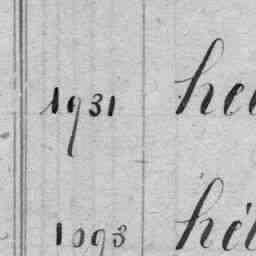 1931 hel
1093 hél